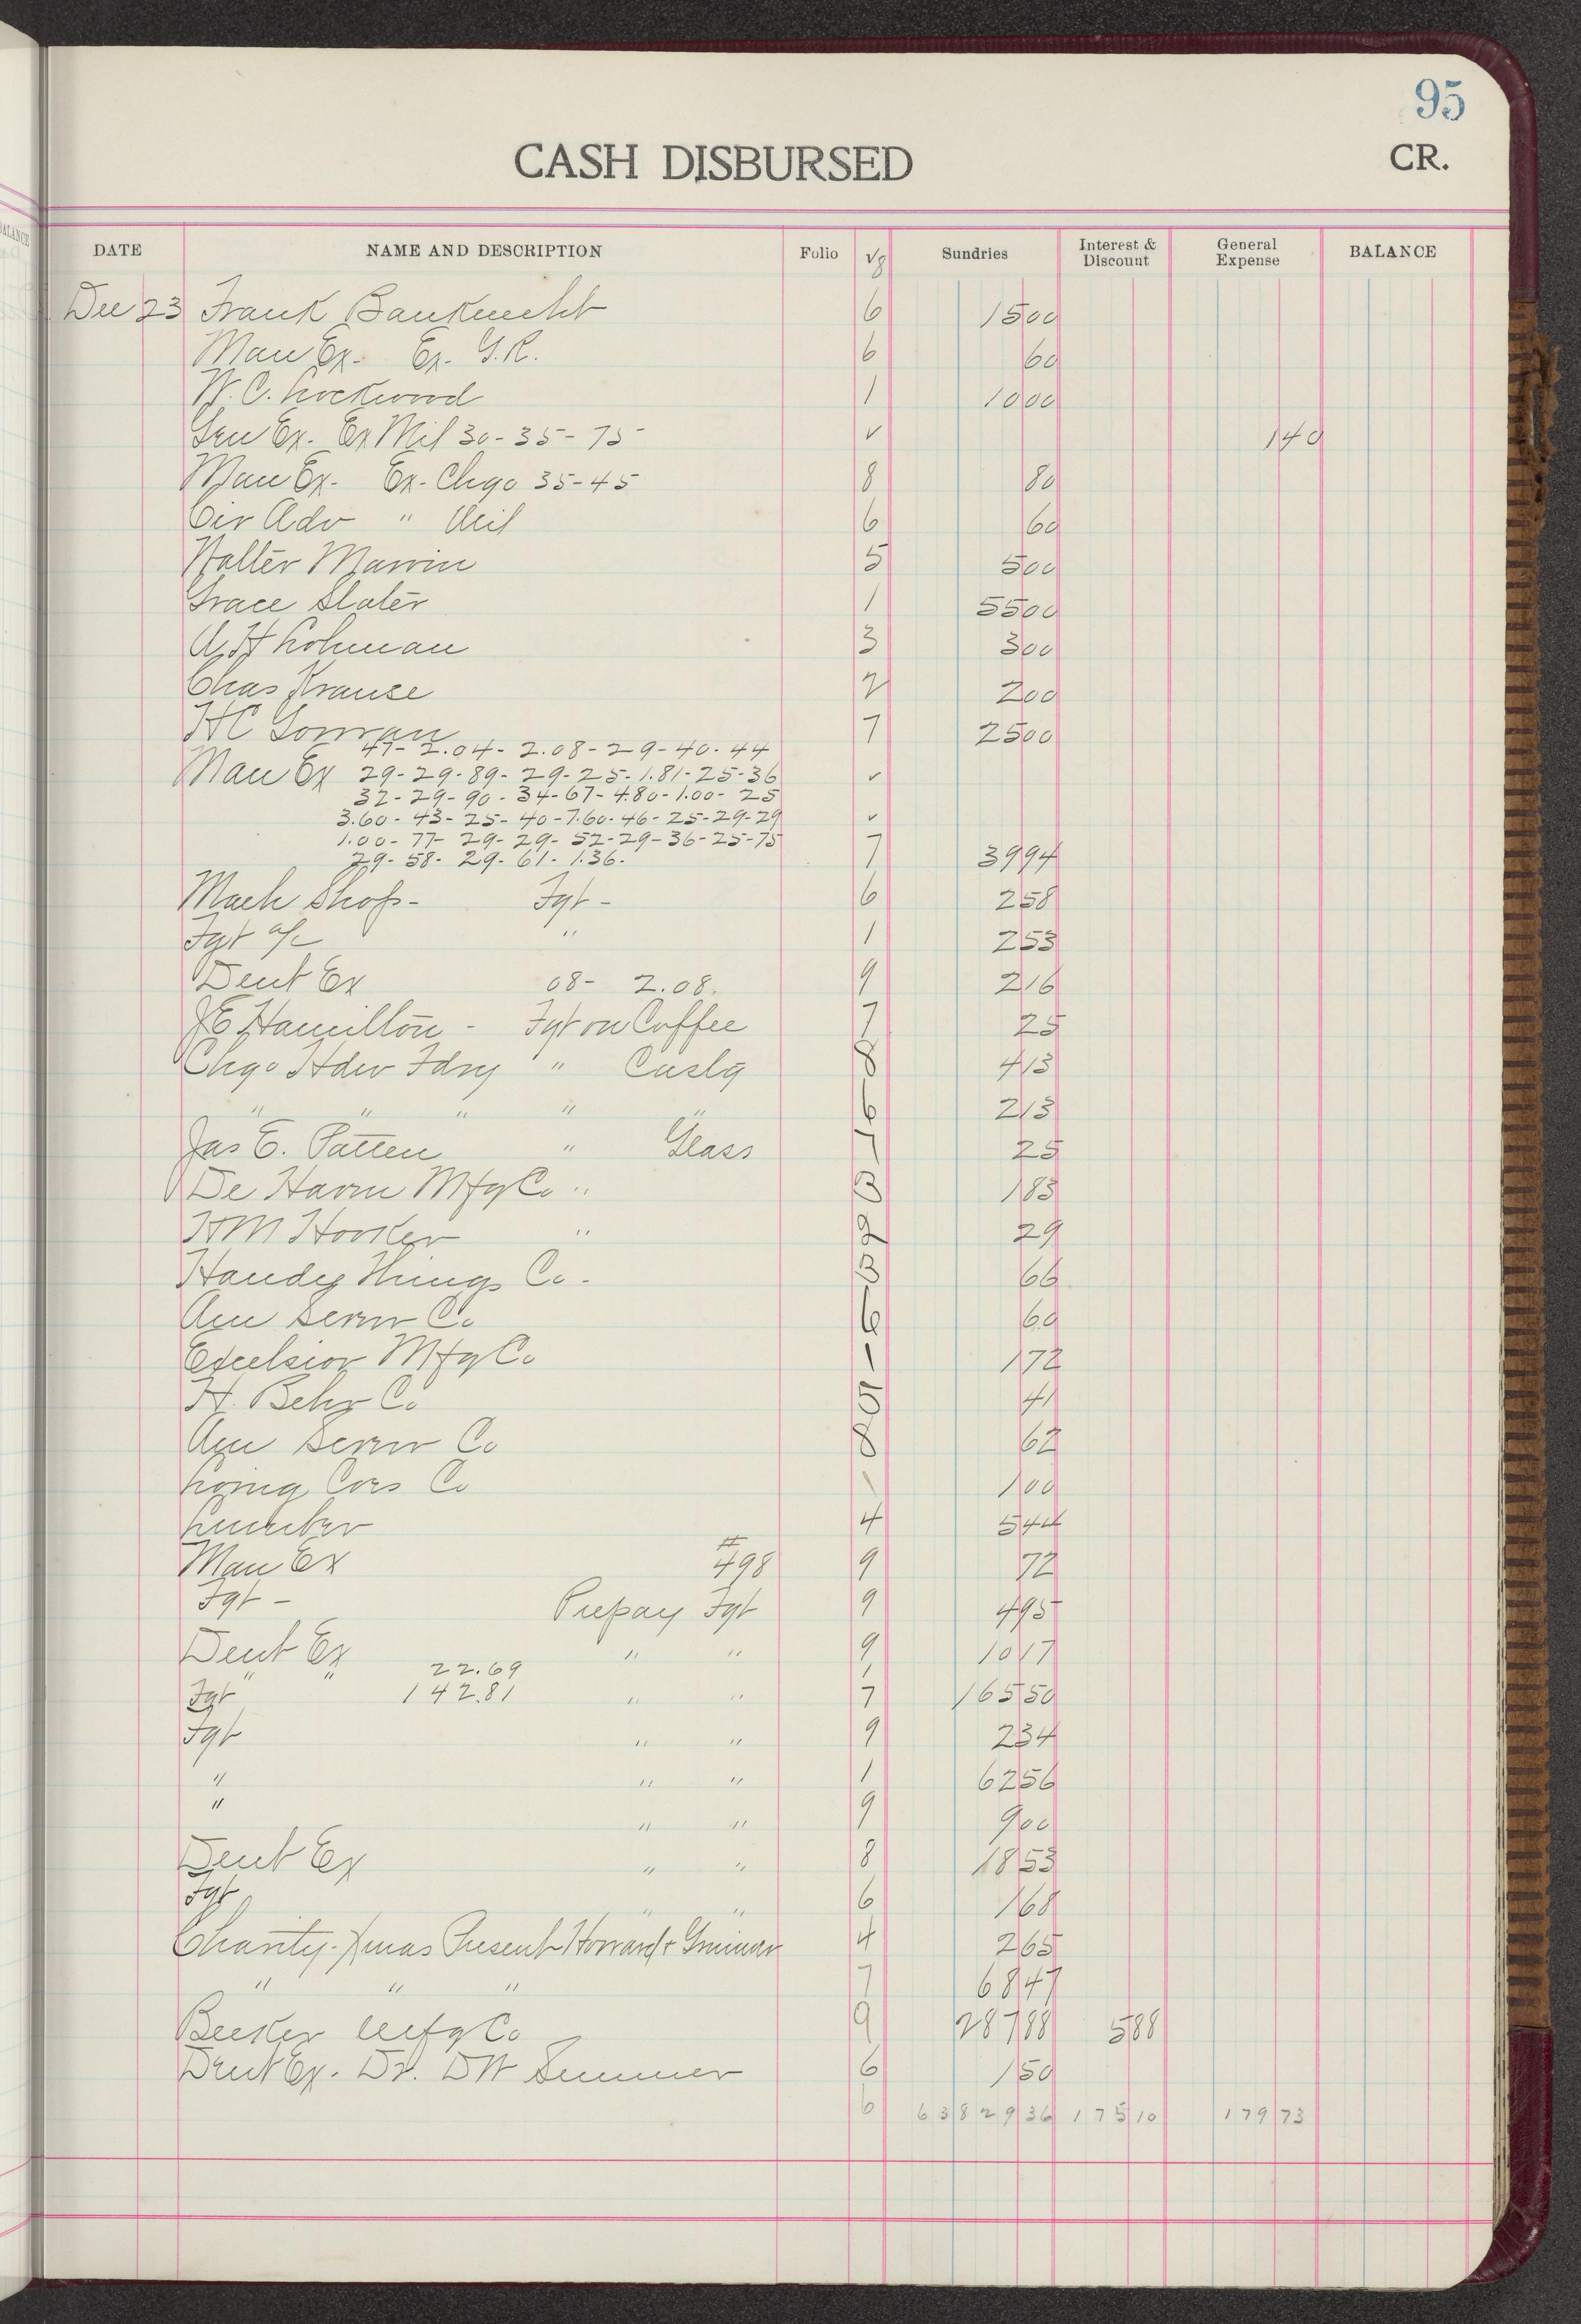 95
CASH DISBURSED CR.
BALANCE
DATE NAME AND DESCRIPTION Folio √8 Sundries Interest & Discount General Expense BALANCE
Dec 23 Frank Bauknecht 6 1500
Man Ex- Ex- G.R. 6 60
W.C. Lockwood 1 1000
Gen Ex- Ex Mil 30-35-75- √ 140
Man Ex- Ex-Chgo 35-45 8 80
Cir Adv " Mil 6 60
Walter Marvin 5 500
Grace Slater 1 5500
A H Lohman 3 300
Chas Krause 2 200
HC Gorman 7 2500
47- 2.04- 2.08-29-40-44
Man Ex 29-29-89-29-25-1.81-25-36 √
32-29-90-34-67-4.80-1.00-25
3.60-43-25-40-7.60-46-25-29-29 √
1.00-77-29-29-52-29-36-25-75
29-58-29-61-1.36- 7 3994
Mach Shop- Fgt- 6 258
Fgt a/c " 1 253
Dent Ex 08- 2.08. 9 216
JE Hamilton - Fgt on Coffee 7 25
Chgo Hdw Fdry " Caslg 8 413
" " " " " 6 213
Jas E. Patten " Glass 1 25
De Haven Mfg Co " 3 183
HM Hooker " 9 29
Handy Things Co- 3 66
Am Screw Co 6 60
Excelsior Mfg Co 1 172
H. Behr Co 5 41
Am Screw Co 8 62
Loring Coes Co 100
Lumber 4 544
Man Ex #498 9 72
Fgt - Prepay Fgt 9 495
Dent Ex " " 9 1017
" " 22.69 1
Fgt 142.81 " " 7 16550
Fgt " " 9 234
" " " 1 6256
" " " 9 900
Dent Ex " " 8 1853
Fgt " " 6 168
Charity-Xmas Present Howard + 4 265
" " " 7 6847
Becker Mfg Co 9 28788 588
Dent Ex- Dr. DW Sumner 6 150
6 6382936 17510 17973